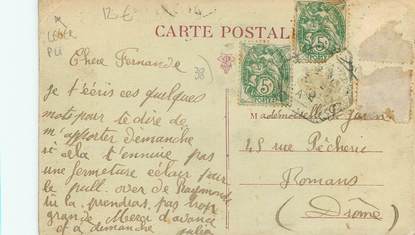 12€
LÉGER
PLI
38
CARTE POSTALE
5
5
POSTES
Chère Fernande
je t'écris ces quelques
mots pour te dire de
m'apporter dimanche
si cela t'ennuie pas
une fermeture éclair pour
le pull-over de Raymonde
tu la prendras pas trop
grande. Merci d'avance
et à dimanche Julia
Mademoiselle F.
45 rue Pêcherie
Romans
(Drôme)